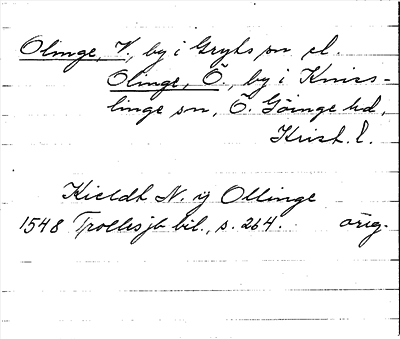 Olinge, V., by i Gryts sn el.
Olinge, Ö., by i Kniss-
linge sn, Ö. Göinge hd,
Krist. l.
Kieldt N. ij Ollinge
1548 Trollesjb bil., s. 264. orig.